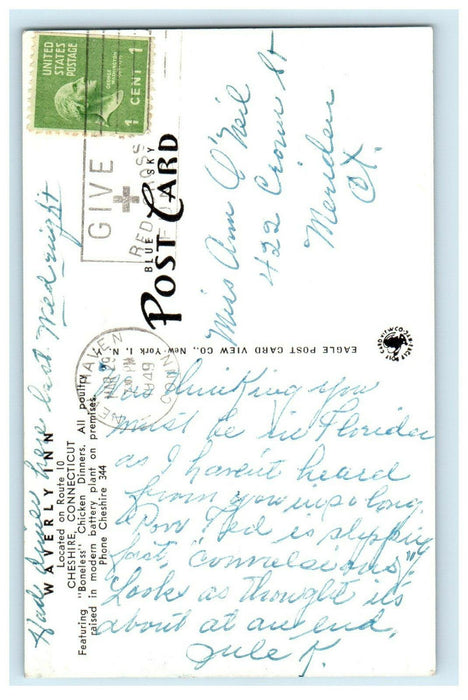 UNITED
STATES
POSTAGE
GEORGE
WASHINGTON
1 CENT 1
GIVE
RED CROSS
FUND
BLUE SKY
POST CARD
Miss Ann O'Neil
422 Crown St
Meriden
Ct.
EAGLE POST CARD VIEW CO., NEW YORK 1, N. Y.
NEW HAVEN
MAR 29
PM
1949
CONN.
WAVERLY INN
Located on Route 10
CHESHIRE, CONNECTICUT
Featuring "Boneless" Chicken Dinners. All poultry
raised in modern battery plant on premises.
Phone Cheshire 344
Had dinner here last Wed night
Was thinking you
must be in Florida
as I haven't heard
from you in so long
Poor Ted is slipping
fast, "convulsions".
Looks as thought its
about at an end.
Jule K.